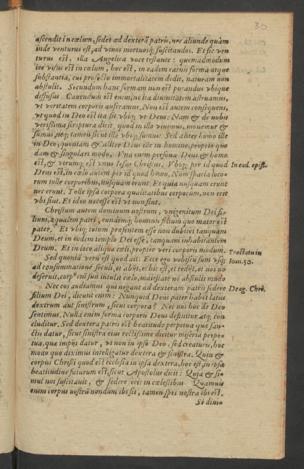 30
ascendit in cœlum, sedet ad dexterā patris, nec aliunde quàm
inde venturus est, ad vivos mortuosq́; judicandos. Et sic ven
turus est, illa Angelica voce testante: quemadmodum
ire visus est in cœlum, hoc est, in eadem carnis forma atque
substantia, cui profectò immortalitatem dedit, naturam non
abstulit. Secundum hanc formam non est putandus ubique
diffusus. Cavendum est enim, ne ita divinitatem astruamus,
ut veritatem corporis auferamus. Non est autem consequens,
ut quod in Deo est ita sit ubiq́; ut Deus. Nam & de nobis
verissima scriptura dicit, quod in illo vivimus, movemur &
sumus, nec tamen sicut ille ubiq́; sumus. Sed aliter homo ille
in Deo, quoniam & aliter Deus ille in homine, proprio quo
dam & singulari modo. Una enim persona Deus & homo
est, & utrumq́; est unus Iesus Christus, Ubiq́; per id quod
In ead. epist.
Deus est, in cœlo autem per id quod homo. Nam spatia loco-
rum tolle corporibus, nusquam erunt. Et quia nusquam erunt
nec erunt. Tolle ipsa corpora qualitatibus corporum, non erit
ubi sint. Et ideo necesse est ut non sint.
Christum autem dominum nostrum, unigenitum Dei fi-
lium, æqualem patri, eundémq́; hominis filium quo maior est
pater, Et ubiq́; totum præsentem esse non dubites tanquam
Deum, et in eodem templo Dei esse, tanquam inhabitantem
Deum. Et in loco aliquo cœli, propter veri corporis modum.
Tractatu in
Ioan. 50.
Sed quoniā verū est quod ait: Ecce ego vobiscū sum usq́;
ad consummationē seculi, et abiit, et hic est, et redijt, et nos nō
deseruit, corp9 enī suū intulit cœlo, maiestatē nō abstulit mūdo
Nec eos audiamus qui negant ad dexteram patris sedere
De ag. Chrō.
filium Dei, dicunt enim: Nunquid Deus pater habet latus
dextrum aut sinistrum, sicut corpora? Nec nos hoc de Deo
sentimus. Nulla enim forma corporis Deus definitur atq́; con
cluditur. Sed dextera patris est beatitudo perpetua quæ san-
ctis datur, sicut sinistra eius rectissime dicitur miseria perpe-
tua, quæ impijs datur, ut non in ipso Deo, sed creaturis, hoc
modo quo diximus intelligatur dextera & sinistra. Quia &
corpus Christi quod est ecclesia in ipsa dextera, hoc est in ipsa
beatitudine futurum est, sicut Apostolus dicit: Quia & si-
mul nos suscitavit, & sedere fecit in cœlestibus. Quamvis
enim corpus nostrū nondum ibi sit, tamen spes nostra ibi est.
Et ideo